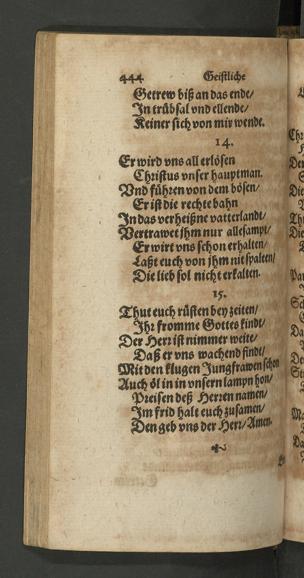 444 Geistliche
Getrew biß an das ende/
In trübsal vnd ellende/
Keiner sich von mir wende.
14.
Er wird vns all erlösen
Christus vnser hauptman.
Vnd führen von dem bösen/
Er ist die rechte bahn
In das verheißne vatterlandt/
Vertrawet jhm nur allesampt/
Er wirt vns schon erhalten/
Laßt euch von jhm nit spalten/
Die lieb sol nicht erkalten.
15.
Thut euch rüsten bey zeiten/
Ihr fromme Gottes kindt/
Der Herr ist nimmer weite/
Daß er vns wachend findt/
Mit den klugen Jungfrawen schon
Auch öl in in vnsern lampn hon/
Preisen deß Herren namen/
Im frid halt euch zusamen/
Den geb vns der Herr/ Amen.